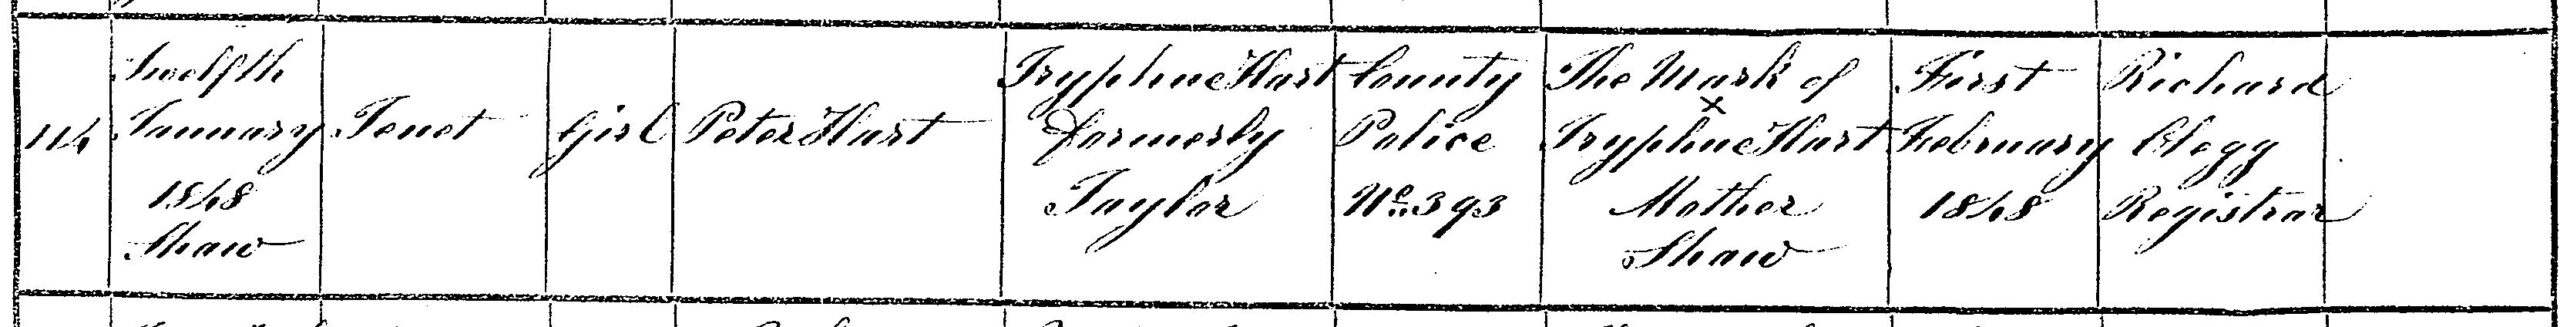 114
Twelfth
January
1848
Shaw
Jenet
Girl
Peter Hart
Tryphne Hart
formerly
Taylor
County
Police
No. 393
The Mark of
x
Tryphne Hart
Mother
Shaw
First
February
1848
Richard
Clegg
Registrar